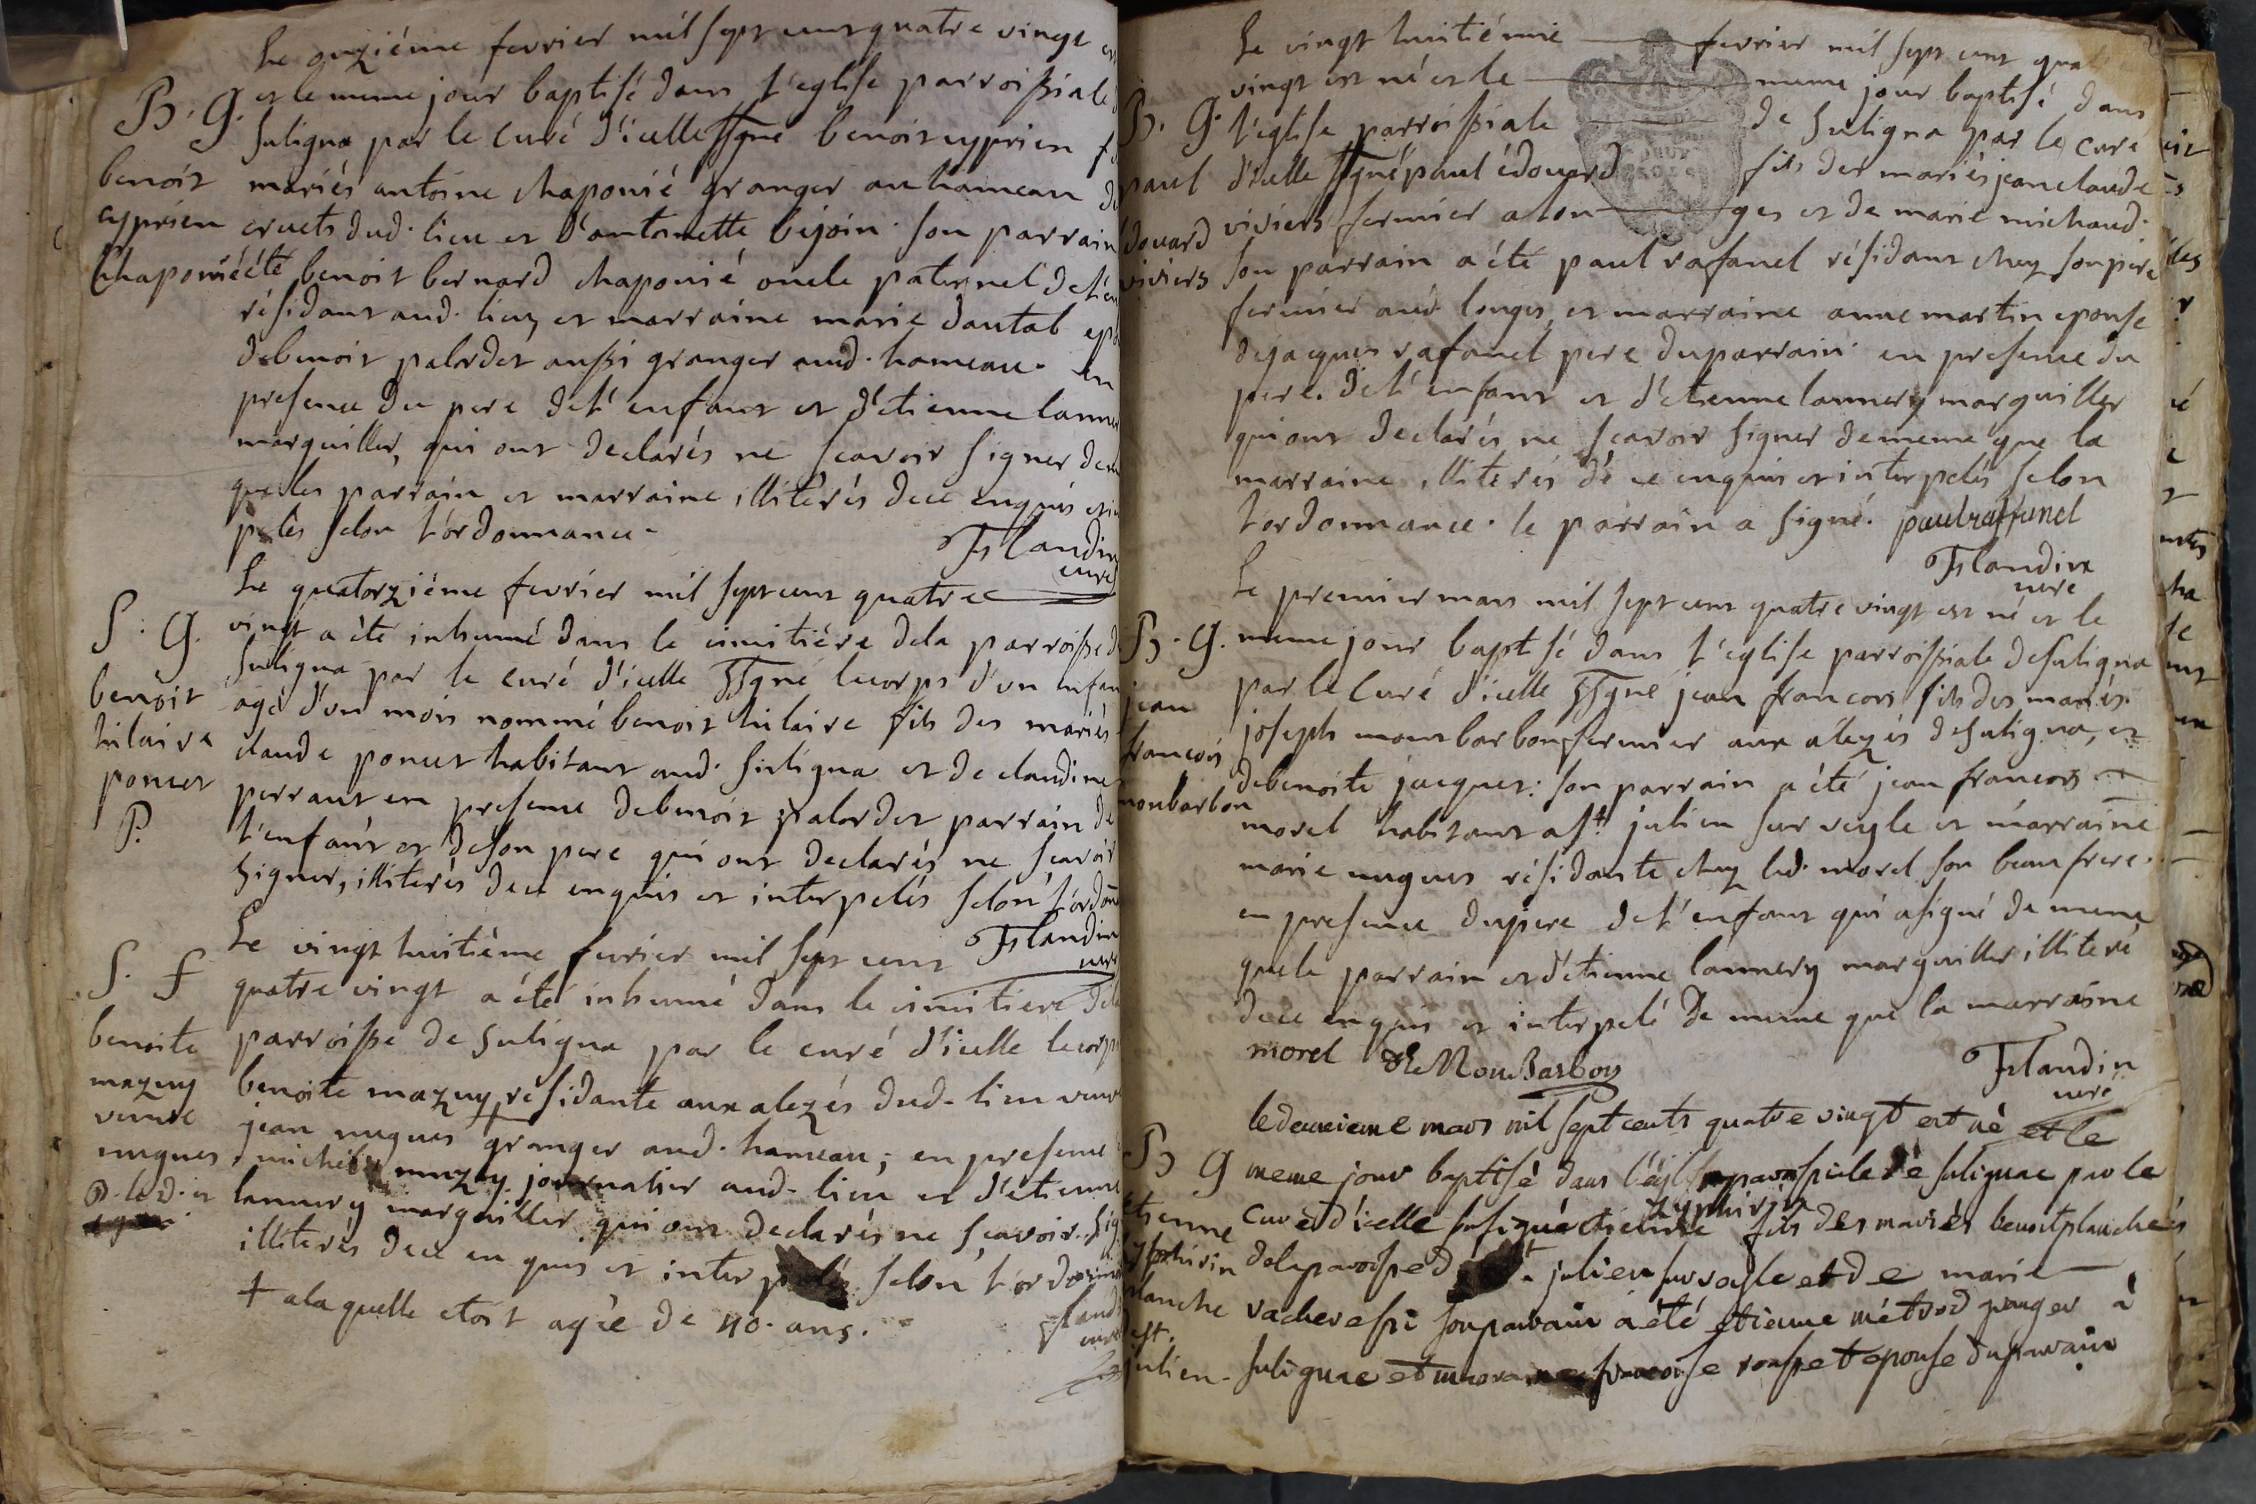 Le onziéme fevrier mil sept cent quatre vingt est
B. G. et le meme jour baptisé dans l'eglise parroissiale
suligna par le curé d'icelle ssigné benoit cyprien
benoit mariés antoine chaponié granger au hameau
cyprien cruets dud. lieu et d'antoinette bejoin. son parrain
Chaponié été benoit bernard chaponié oncle paternel de l'en
résidant aud. lieu, et marraine marie dautal
de benoit palordet aussi granger aud. hameau. en
presence du pere de l'enfant et d'etienne lanne
marguiller, qui ont declarés ne scavoir signer de
que les parrain et marraine illiterés de ce enquis et in
pelés selon l'ordonnance.
Flandin
curé
Le quatorziéme fevrier mil sept cent quatre
S. G. vingt a été inhumé dans le cimitiére de la parroisse
suligna par le curé d'icelle ssigné le corps d'un enfan
benoit agé d'un mois nommé benoit hilaire fils des mariés
hilaire claude poncet habitant aud. suligna et de claudine
poncet perraut en presence de benoit palordet parrain de
P. l'enfant et de son pere qui ont declarés ne scavoir
signer, illiterés de ce enquis et interpelés selon l'ordon
Flandin
curé
Le vingt huitiéme fevrier mil sept cent
S. f quatre vingt a été inhumé dans le cimitiere de la
parroisse de suligna par le curé d'icelle le corps
benoite benoite mazuy, résidante aux alezés dud. lieu veuve
mazuy jean nugues + granger aud. hameau; en presence
veuve michel mazuy journalier aud. lieu et d'etienne
nugues lannery marguiller qui ont declarés ne scavoir sig
illiterés de ce enquis et interpelés selon l'ordonn
+ a laquelle etoit agée de 40. ans.
Fland
curé
Le vingt huitiéme fevrier mil sept cent quat
vingt est né et le meme jour baptisé dans
B. G. l'eglise parroissiale de suligna par le curé
paul d'icelle ssigné paul édouard fils des mariés jean claude
douard viviers fermier a longes et de marie michaud.
viviers son parrain a été paul rafanel résidant chez son pere
fermier aud. longes, et marraine anne martin epouse
de jacques rafanel pere du parrain. en presence du
pere. de l'enfant et d'etienne lannery marguiller
qui ont declarés ne scavoir signer de meme que la
marraine illiterés de ce enquis et interpelés selon
l'ordonnance. le parrain a signé. paul raffanel
Flandin
curé
Le premier mars mil sept cent quatre vingt est né et le
B. G. meme jour baptisé dans l'eglise parroissiale de suligna
jean par le curé d'icelle ssigné jean francois fils des mariés
francois joseph monbarbon fermier aux alezés de suligna, et
de benoite jacquet: son parrain a été jean francois
monbarbon morel habitant a st. julien sur veyle et marraine
marie nugues résidante chez led. morel son beau frere.
en presence du pere de l'enfant qui a signé de meme
que le parrain et d'etienne lannery marguiller illiteré
de ce enquis et interpelé de meme que la marraine
morel MonBarbon
Flandin
curé
le deuxieme mars mil sept cents quatre vingt est né et le
B G meme jour baptisé dans l'église paroissiale de sulignae par le
etienne curé d'icelle sousigné etienne zyphirin fils des mariés benoit planche
zyphirin de la paroisse de st. julien sur veyle et de marie
planche vacheresse son parain a été etienne métrod granger à
st.
julien. sulignae et marraine francoise rousset epouse du parain